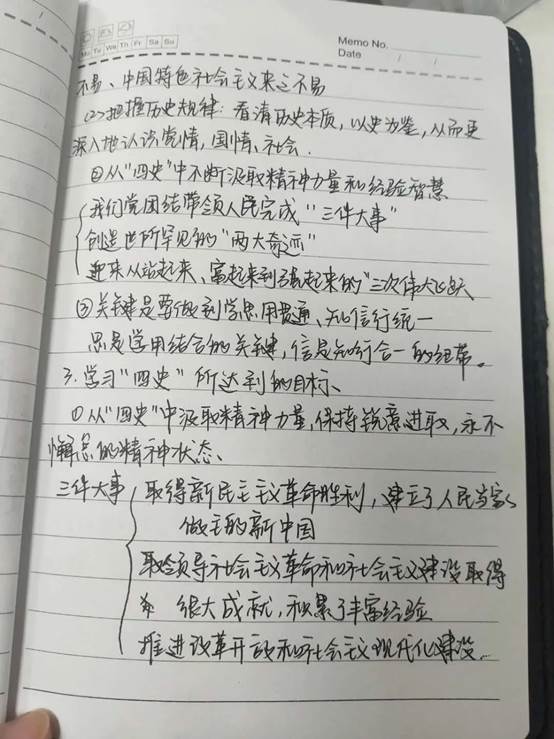 Mo Tu We Th Fr Sa Su
Memo No.
Date / /
不易、中国特色社会主义来之不易
(2)把握历史规律:看清历史本质,以史为鉴,从而更
深入地认识党情,国情、社会.
①从"四史"中不断汲取精神力量和经验智慧
我们党团结带领人民完成"三件大事"
创造世所罕见的"两大奇迹"
迎来从站起来、富起来到强起来的"三次伟大飞跃
②关键是要做到学思用贯通、知信行统一
思是学用结合的关键,信是知行合一的纽带。
3.学习"四史"所达到的目标、
①从"四史"中汲取精神力量,保持锐意进取,永不
懈怠的精神状态、
三件大事 取得新民主主义革命胜利,建立了人民当家
做主的新中国
领导社会主义革命和社会主义建设取得
很大成就,积累了丰富经验
推进改革开放和社会主义现代化建设.